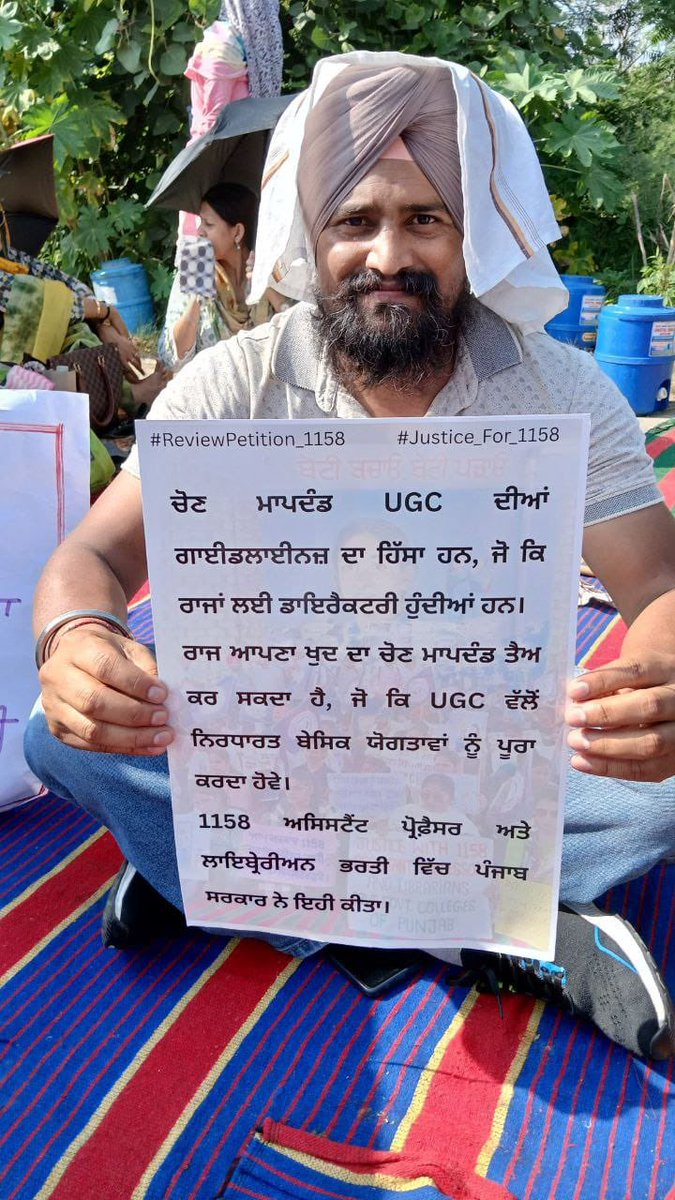 #ReviewPetition_1158 #Justice_For_1158
ਚੋਣ ਮਾਪਦੰਡ UGC ਦੀਆਂ
ਗਾਈਡਲਾਈਨਜ਼ ਦਾ ਹਿੱਸਾ ਹਨ, ਜੋ ਕਿ
ਰਾਜਾਂ ਲਈ ਡਾਇਰੈਕਟਰੀ ਹੁੰਦੀਆਂ ਹਨ।
ਰਾਜ ਆਪਣਾ ਖੁਦ ਦਾ ਚੋਣ ਮਾਪਦੰਡ ਤੈਅ
ਕਰ ਸਕਦਾ ਹੈ, ਜੋ ਕਿ UGC ਵੱਲੋਂ
ਨਿਰਧਾਰਤ ਬੇਸਿਕ ਯੋਗਤਾਵਾਂ ਨੂੰ ਪੂਰਾ
ਕਰਦਾ ਹੋਵੇ।
1158 ਅਸਿਸਟੈਂਟ ਪ੍ਰੋਫ਼ੈਸਰ ਅਤੇ
ਲਾਇਬ੍ਰੇਰੀਅਨ ਭਰਤੀ ਵਿੱਚ ਪੰਜਾਬ
ਸਰਕਾਰ ਨੇ ਇਹੀ ਕੀਤਾ।